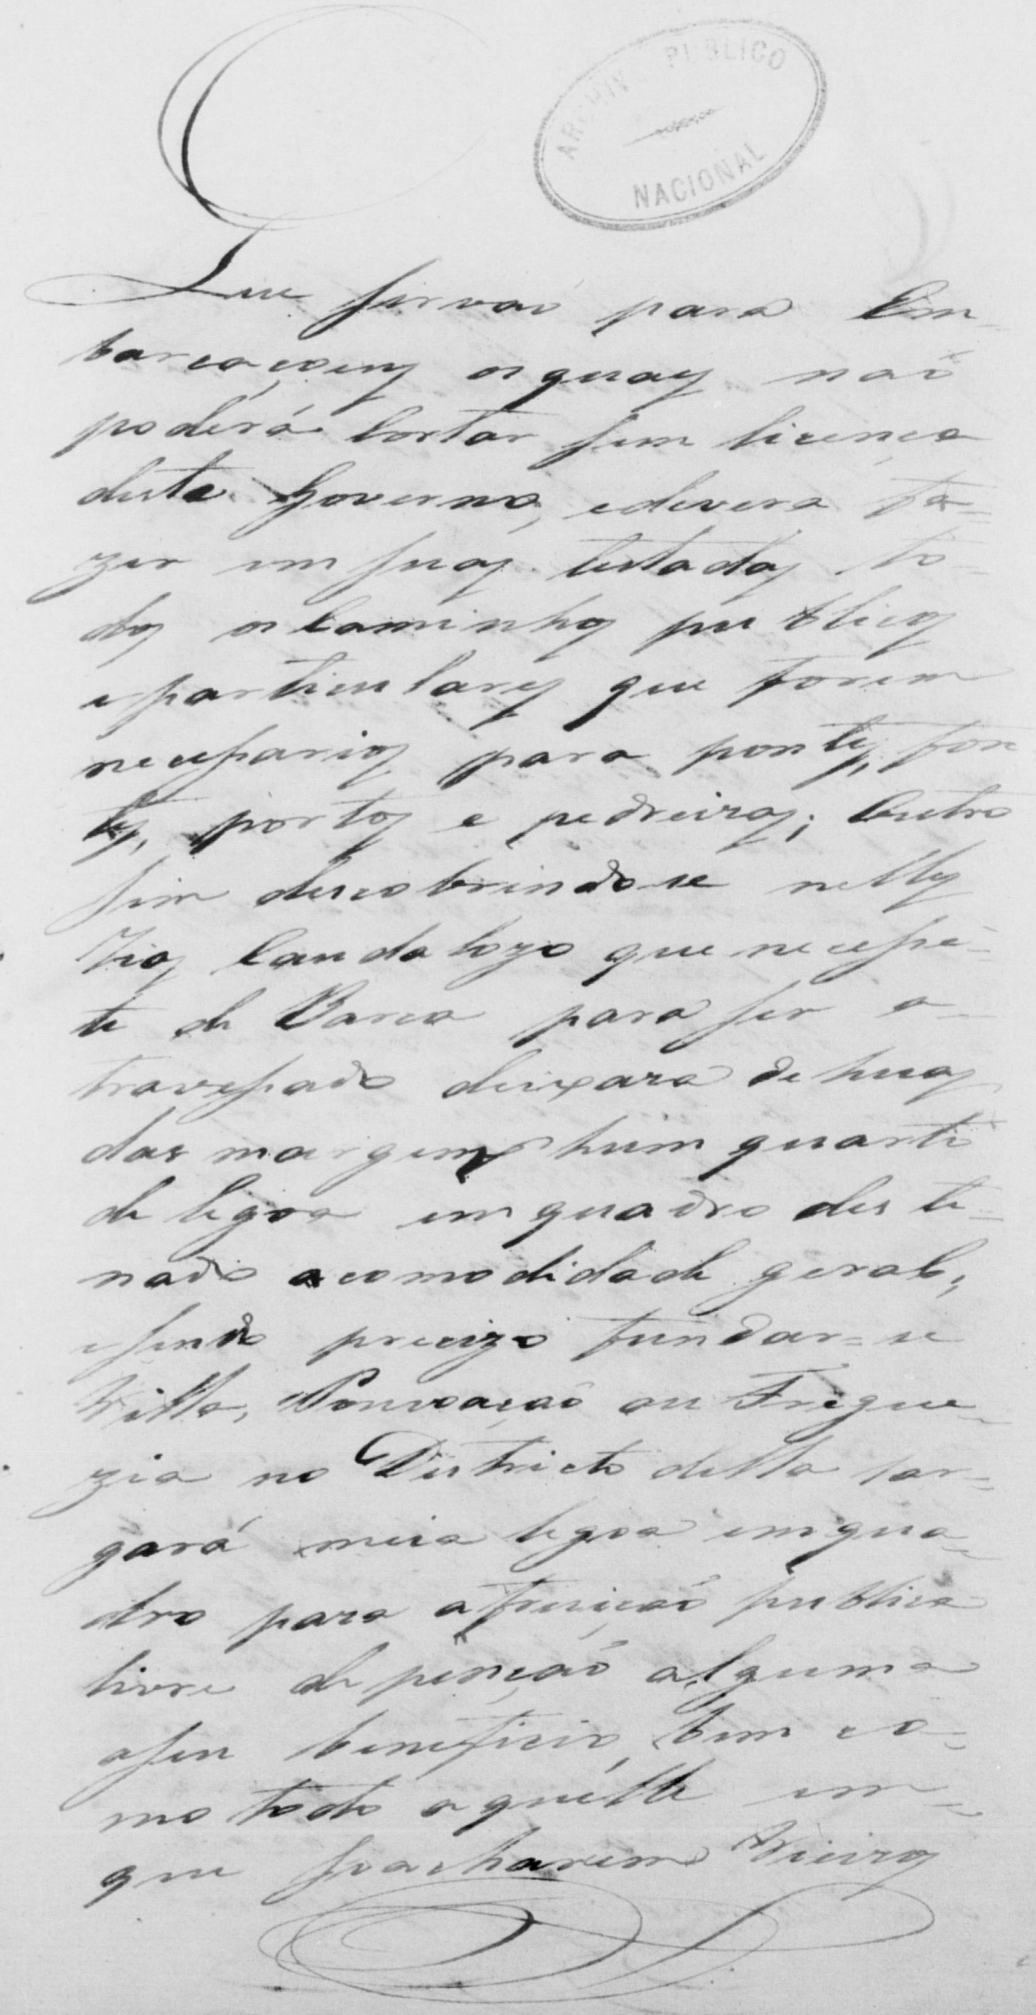 ARCHIVO PUBLICO
NACIONAL
Que sirvaõ para Em-
barcaçoens os quaes naõ
poderá Cortar sem licença
deste Governo, e deverá fa-
zer em suas testadas to-
dos os Caminhos publicos
e particulares que forem
necessarios para pontes, fon
tes, portos e pedreiras; Outro
sim descobrindose nellas
Rio Caudalozo que necessi-
te de Barca para ser a-
travessado deixara de huas
das margens hum quarto
de legoa em quadro desti-
nado a comodidade geral,
e sendo precizo fundar-se
Villa, Povoaçaõ ou Fregue-
zia no Districto della lar-
gará meia legoa em qua-
dro para a fruiçaõ publica
livre de pençaõ alguma
a seu beneficio, bem co-
mo todo aquelle em
que se acharem Vieiros